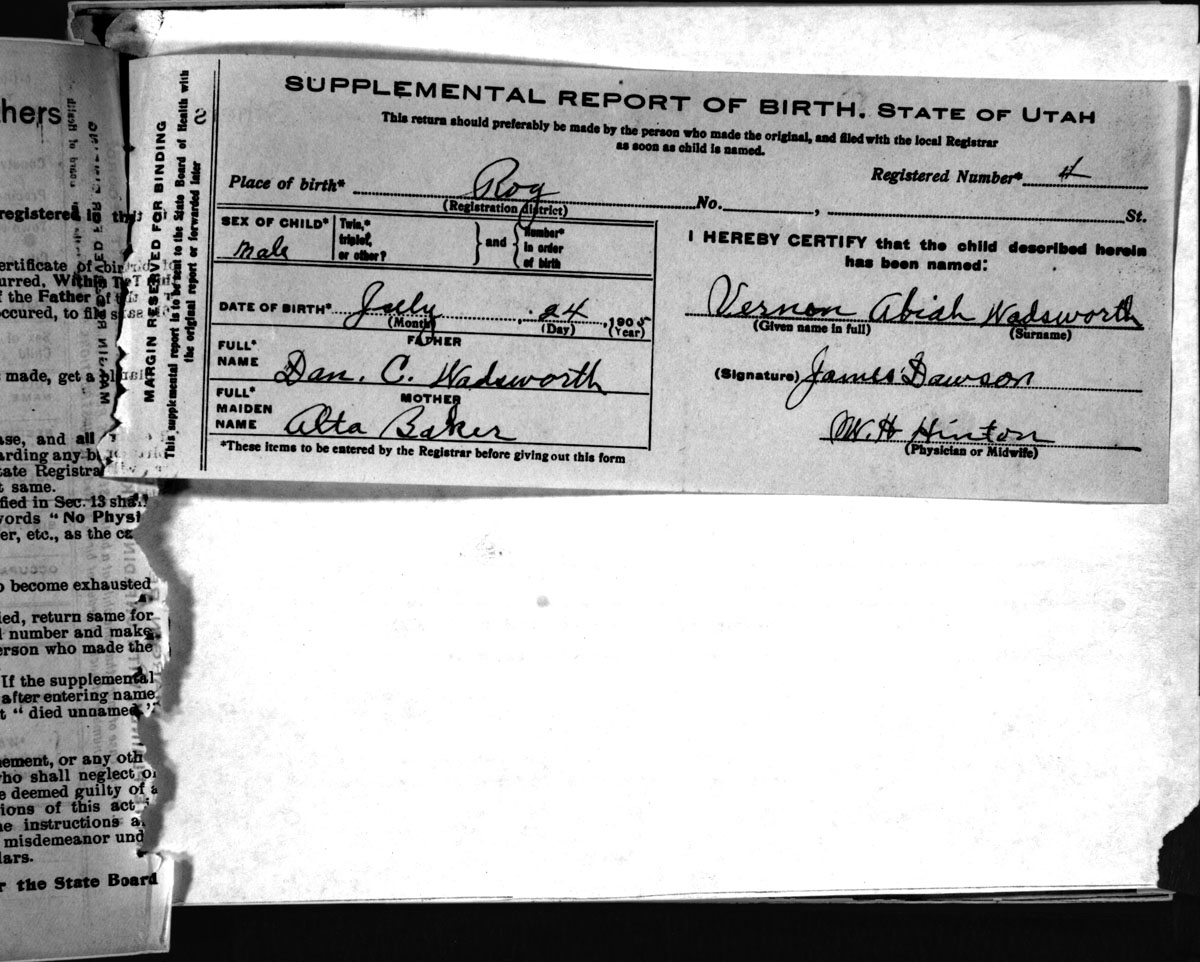 SUPPLEMENTAL REPORT OF BIRTH. STATE OF UTAH
This return should preferably be made by the person who made the original, and filed with the local Registrar
as soon as child is named.
Registered Number* 4
Place of birth* Roy No. , St.
(Registration district)
SEX OF CHILD* Male
Twin,* triplet, or other? } and { Number* in order of birth
DATE OF BIRTH* July , 24 , 1905
(Month) (Day) (Year)
FATHER
FULL* NAME Dan. C. Wadsworth
MOTHER
FULL* MAIDEN NAME Alta Baker
*These items to be entered by the Registrar before giving out this form
I HEREBY CERTIFY that the child described herein
has been named:
Vernon Abiah Wadsworth
(Given name in full) (Surname)
(Signature) James Dawson
W. H Hinton
(Physician or Midwife)
MARGIN RESERVED FOR BINDING
This supplemental report is to be sent to the State Board of Health with
the original report or forwarded later
hers
registered in
ertificate of
urred, Within
f the Father of
ccured, to file
made, get a
ase, and all
arding any
tate Registra
t same.
fied in Sec. 13 shall
words "No Physi
er, etc., as the
o become exhausted
ied, return same for
l number and make
erson who made the
If the supplemental
after entering name
t "died unnamed"
nement, or any oth
who shall neglect or
e deemed guilty of a
ions of this act
he instructions
misdemeanor und
lars.
r the State Board